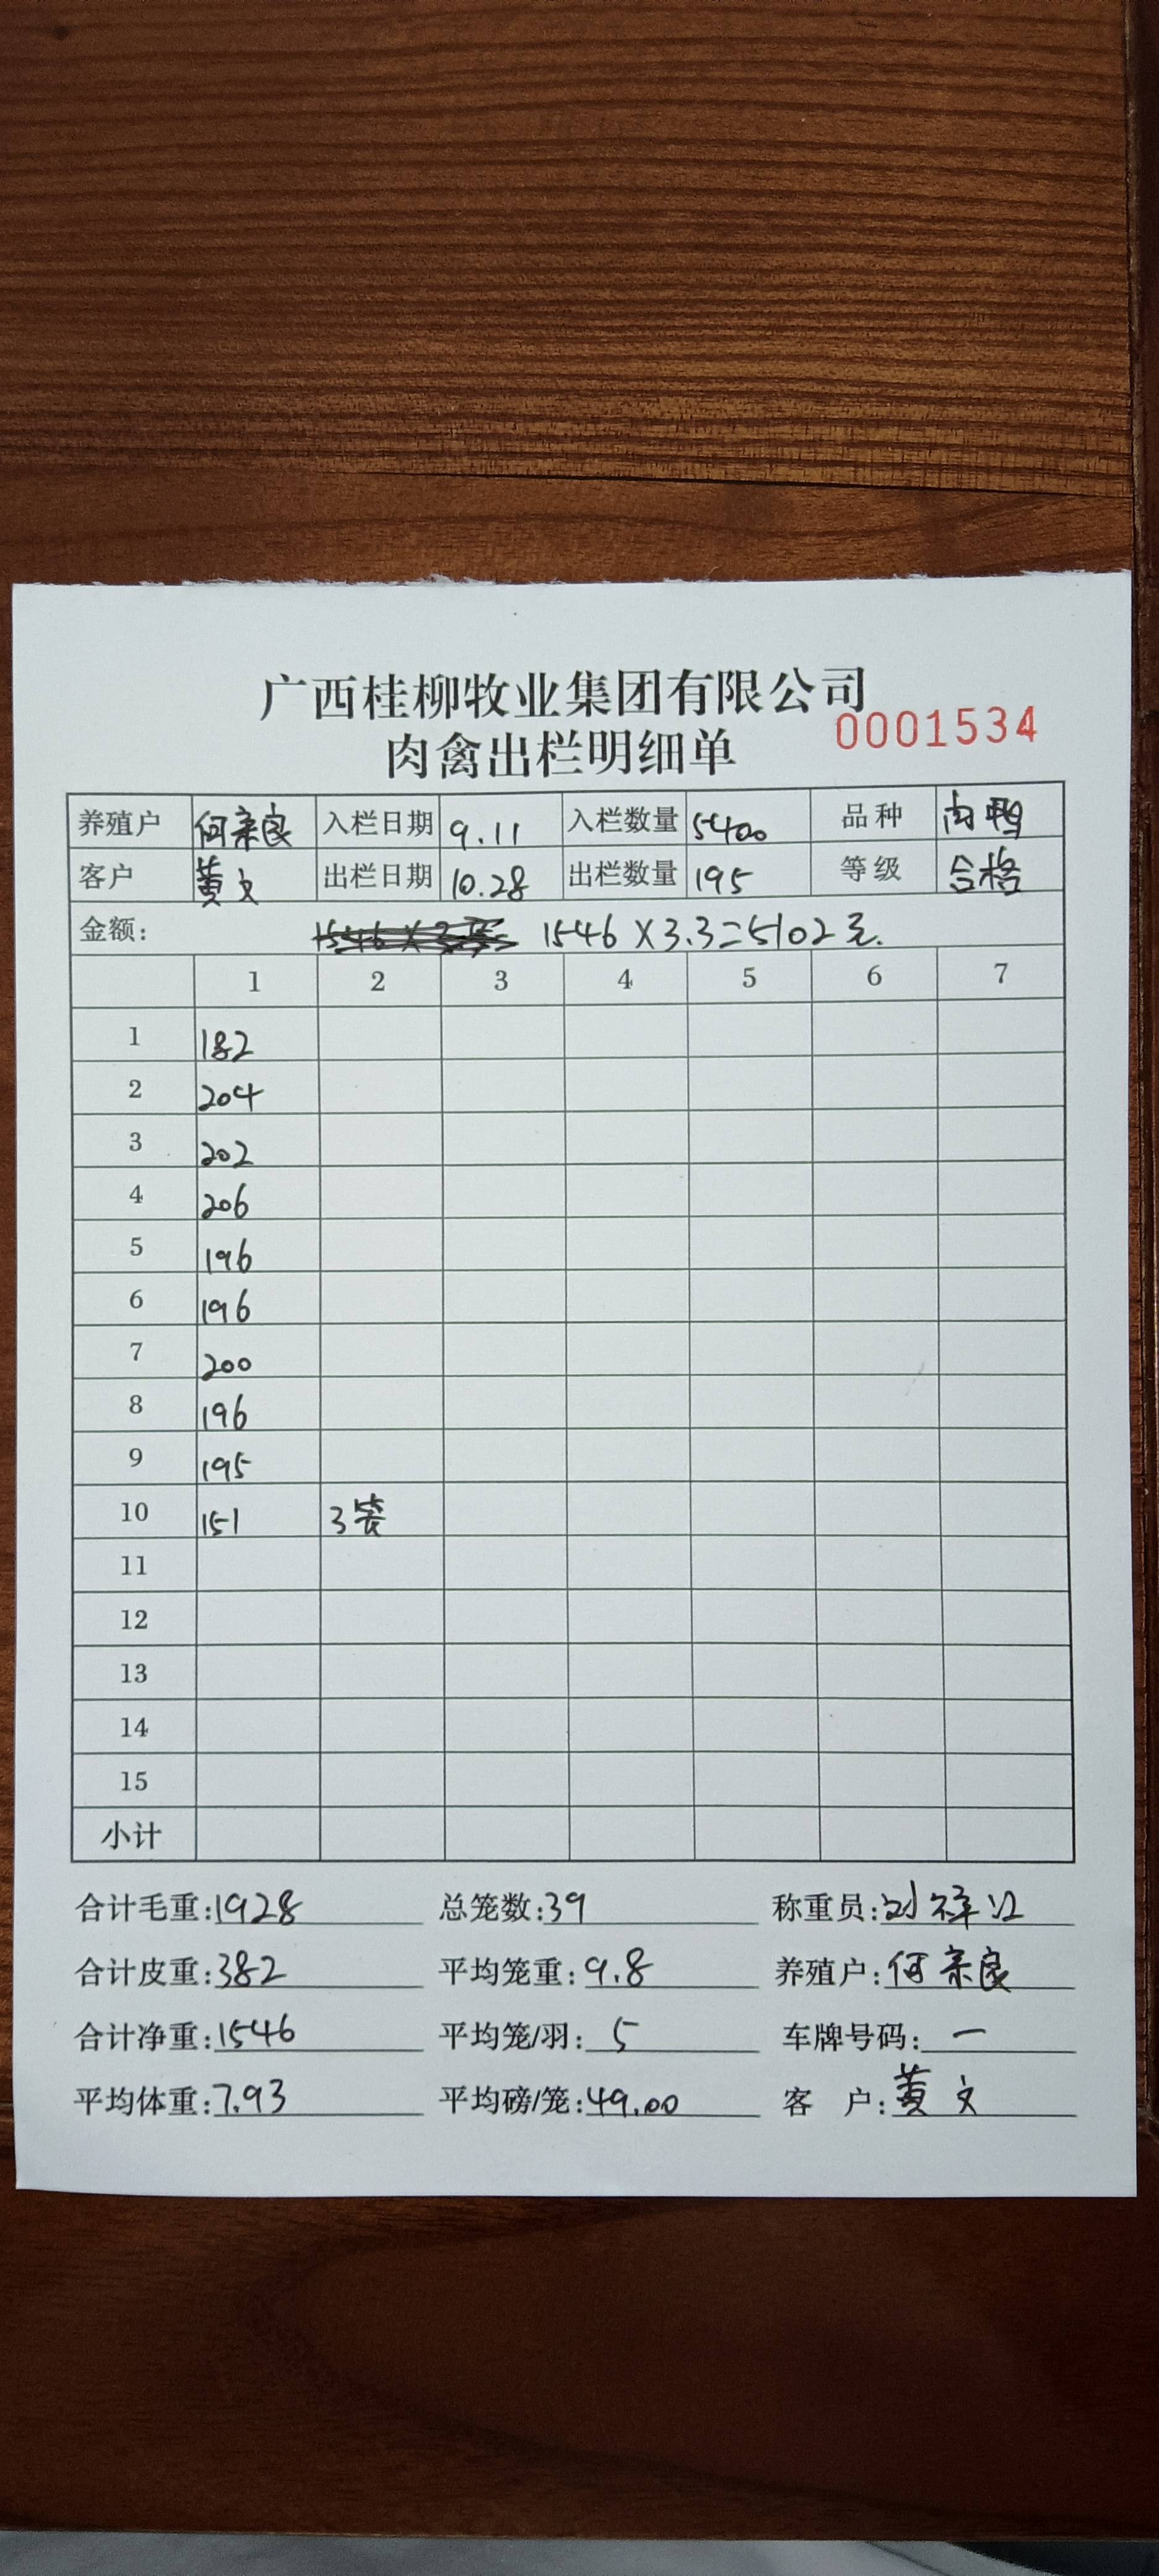 广西桂柳牧业集团有限公司
0001534
肉禽出栏明细单
养殖户 何亲良 入栏日期 9.11 入栏数量 5400 品种 肉鸭
客户 黄文 出栏日期 10.28 出栏数量 195 等级 合格
金额： 1546×3.3=5102元.
1 2 3 4 5 6 7
1 182
2 204
3 202
4 206
5 196
6 196
7 200
8 196
9 195
10 151 3
11
12
13
14
15
小计
合计毛重:1928 总笼数:39 称重员:刘祥江
合计皮重:382 平均笼重:9.8 养殖户:何亲良
合计净重:1546 平均笼/羽: 5 车牌号码: 一
平均体重:7.93 平均磅/笼:49.00 客 户:黄文